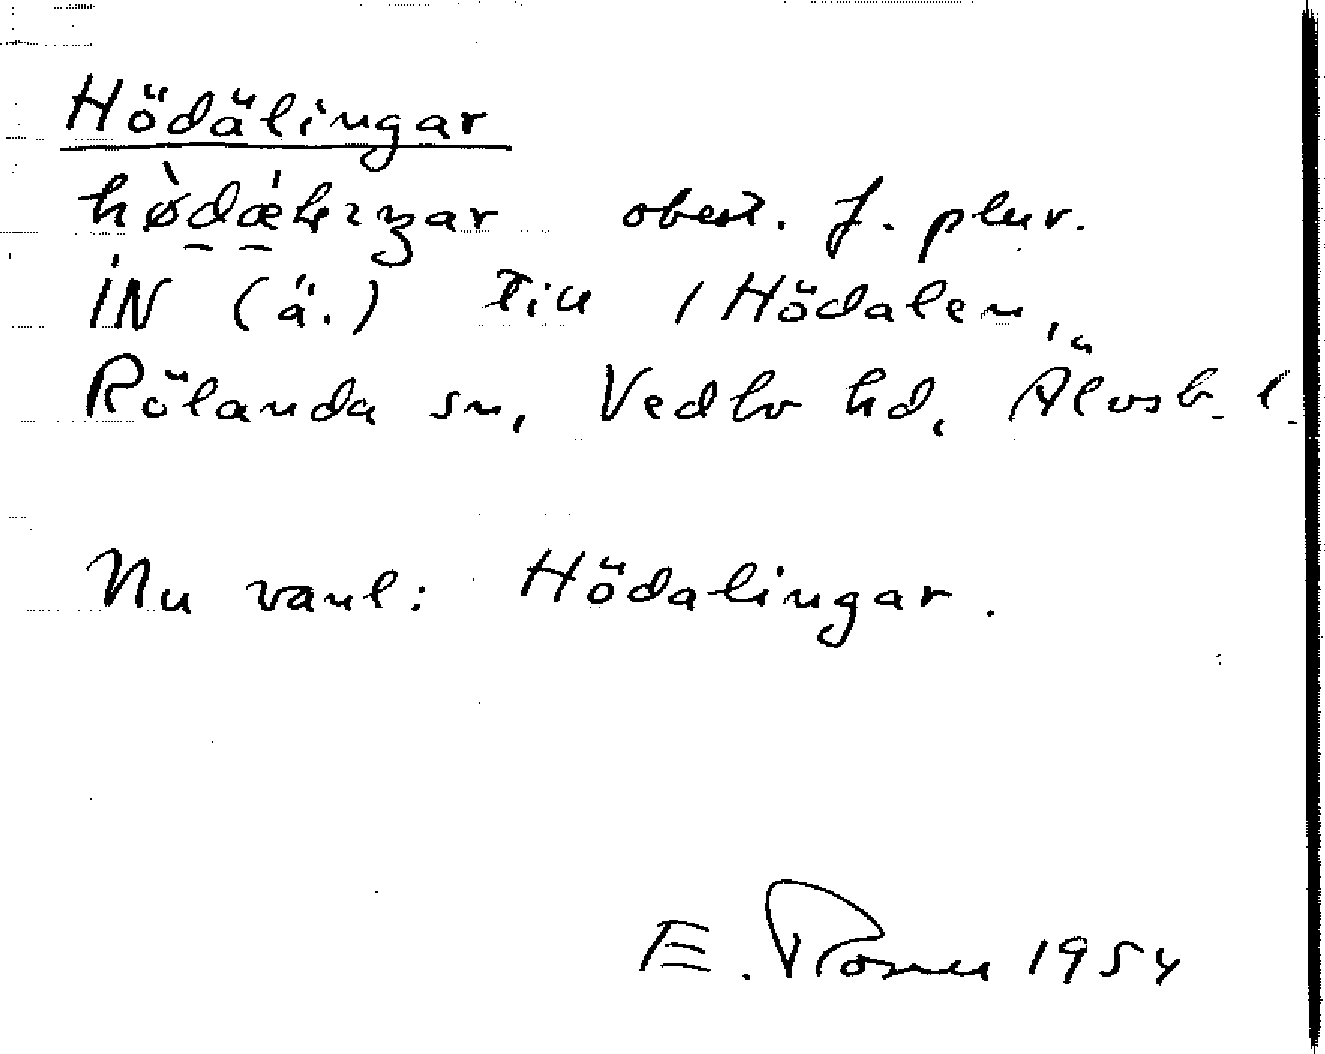 Hödälingar
obest. f. plur.
IN (ä.) till 1 Hödalen,
Rölanda sn, Vedbo hd, Älvsb. l.
Nu vanl: Hödalingar.
E. 1954